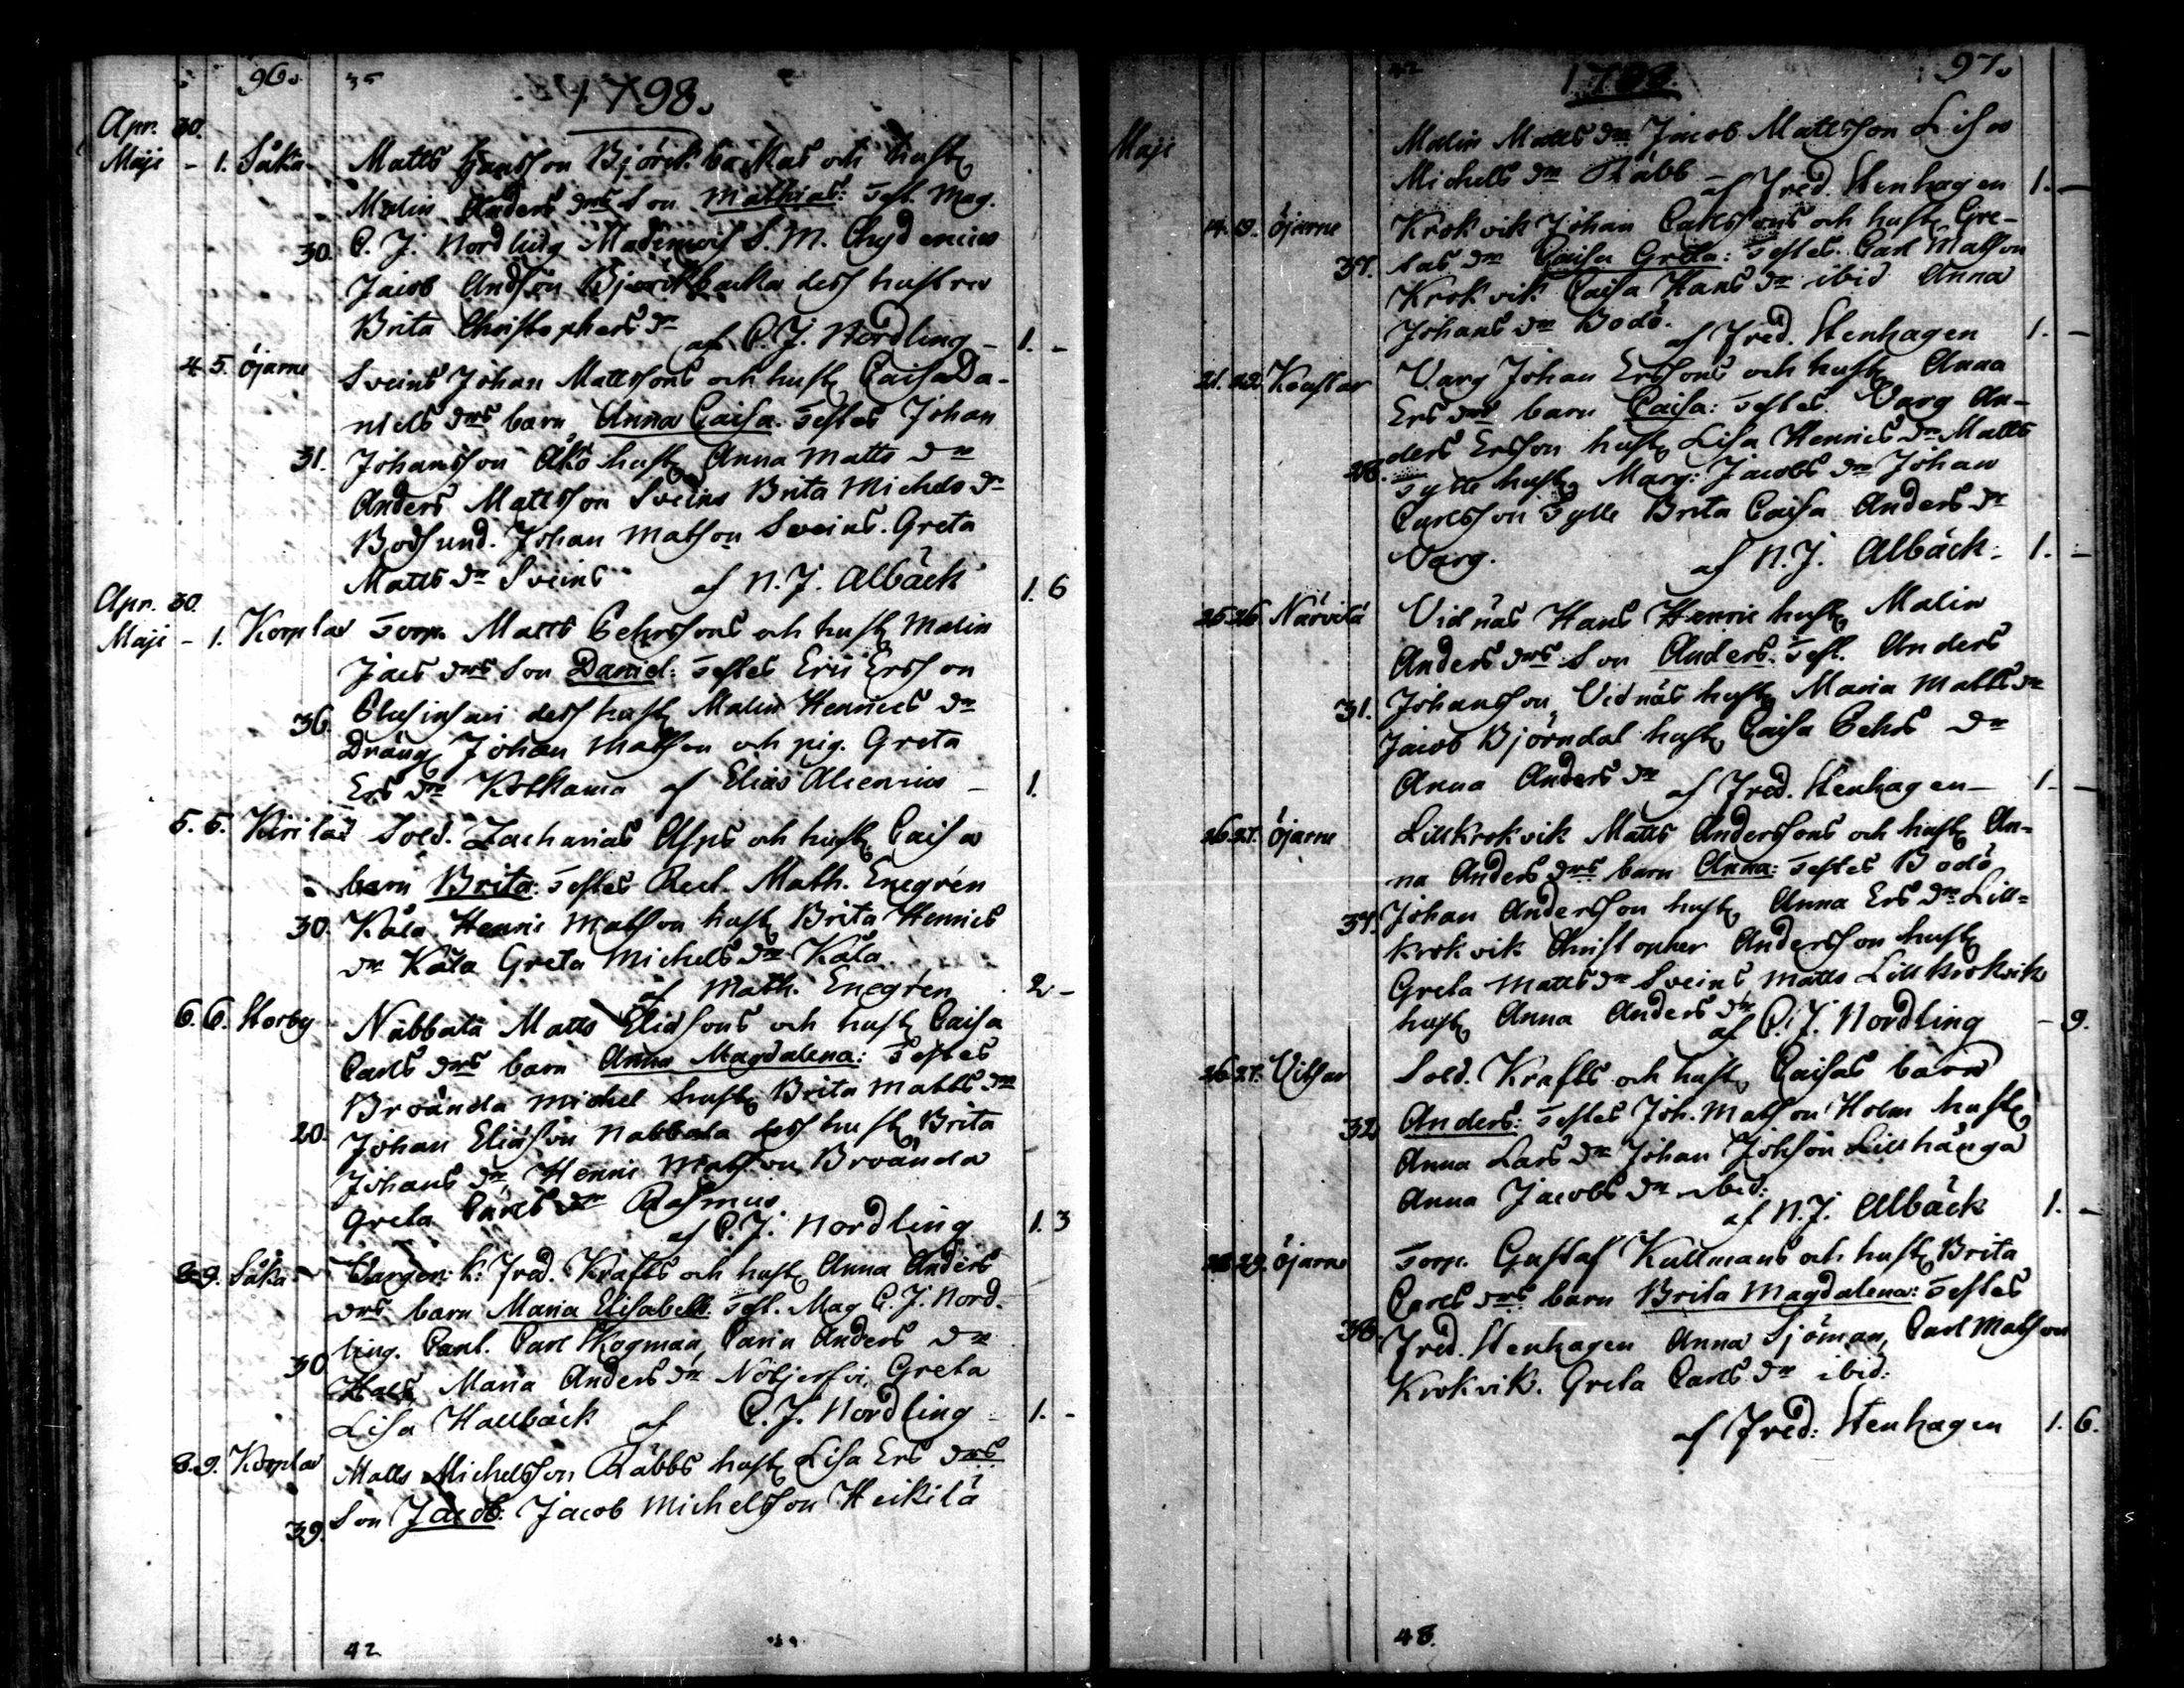 96. 35 1798.
Apr. 30.
Maji - 1. Såka Matts Hansson Björkbackas och hust.
Malin Anders drs Son Mathias: test. Mag.
30. C. J. Nordling Mademois S. M. Chydenius
Jacob Andsson Björkbacka dess hustru
Brita Christophers dr
af C. J. Nordling - 1. -
4. 5. Öjarne Sveins Johan Mattssons och hust. Caisa Da-
niels drs barn Anna Caisa. Testes Johan
31. Johansson Åkö hust. Anna Matts dr
Anders Mattsson Sveins Brita Michels dr
Bodsund. Johan Matsson Sveins. Greta
Matts dr Sveins af N. J. Albäck 1. 6
Apr. 30.
Maji - 1. Korplax Torp. Matts Pehrssons och hust. Malin
Jacs drs Son Daniel: testes Eric Ersson
36. dess hust. Malin Henrics dr
Dräng. Johan Matsson och pig. Greta
Ers dr Kolkama af Elias Alcenius - 1.
5. 5. Kirilax Sold. Zacharias Asps och hust. Caisa
barn Brita. Testes Recl. Math. Enegrén
30. Kåla Henric Matsson hust. Brita Henrics
dr Kåla Greta Michels dr Kåla.
af Math. Enegrén 2 -
6. 6. Storby Nabbala Matts Eliassons och hust. Caisa
Carls drs barn Anna Magdalena: Testes
Broända Michel hust. Brita Matts dr
20. Johan Eliasson Nabbala dess hust. Brita
Johans dr, Henric Matsson Broända
Greta Carls dr Rasmus.
af C. J. Nordling 1. 3
8. 9. Såka Fred. Krafts och hust. Anna Anders
drs barn Maria Elisabeth. Test. Mag C. J. Nord-
ling. Carl Skogman, Carin Anders dr
30. Maria Anders dr Greta
Lisa Hallbäck af C. J. Nordling - 1. -
8. 9. Korplax Matts Michelsson Räbbs hust. Lisa Ers drs
39. Son Jacob: Jacob Michelsson Heikilä
42
42 1798. 97.
Maji Malin Matts dr Jacob Mattsson Lisa
Michels dr Räbb - af Fred. Stenhagen 1. -
14. 19. Öjarne Krokvik Johan Carlssons och hust. Gre-
37. tas dr Caisa Greta: testes. Carl Matsson
Krokvik Caisa Hans dr ibid Anna
Johans dr Bodö. af Fred. Stenhagen 1. -
21. 22. Varg Johan Erssons och hust. Anna
Ers drs barn Caisa: testes. Varg An-
ders Ersson hust. Lisa Henrics dr Matts
28. Tylle hust. Marg: Jacobs dr Johan
Carlsson Tylle Brita Caisa Anders dr
Varg. af N. J. Albäck. 1. -
25. 26. Närvilä Vidnäs Hans Henric hust. Malin
Anders drs Son Anders: Test. Anders
31. Johansson Vidnäs hust. Maria Matts dr
Jacob Björndal hust. Caisa Pehrs dr
Anna Anders dr af Fred. Stenhagen - 1. -
26. 27. Öjarne Lillkrokvik Matts Anderssons och hust. An-
na Anders drs barn Anna: testes Bodö
37. Johan Andersson hust. Anna Ers dr Lill-
krokvik Christopher Andersson hust.
Greta Matts dr Sveins, Matts Lillkrokvik
hust. Anna Anders dr
af C. J. Nordling - 9.
26. 27. Vitsar Sold. Krafts och hust. Caisas barn
32. Anders: Testes Joh. Matsson Holm hust.
Anna Lars dr Johan Johsson Lillhånga
Anna Jacobs dr ibid:
af N. J. Albäck 1. -
28. 29. Öjarne Torp. Gustaf Kullmans och hust. Brita
Carls drs barn Brita Magdalena: Testes
38. Fred. Stenhagen Anna Sjöman, Carl Matsson
Krokvik. Greta Carls dr ibid:
af Fred: Stenhagen 1. 6.
48.